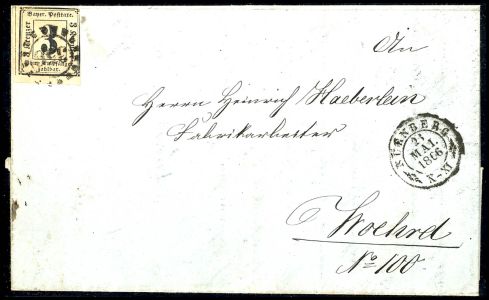 Bayer. Posttaxe.
3 Kreuzer
3
Vom Empfänger
zahlbar.
An
Herrn Heinrich Haeberlein
Fabrikarbeiter
NUERNBERG
23
MAI.
1866
X-XI
Woehrd
No 100.